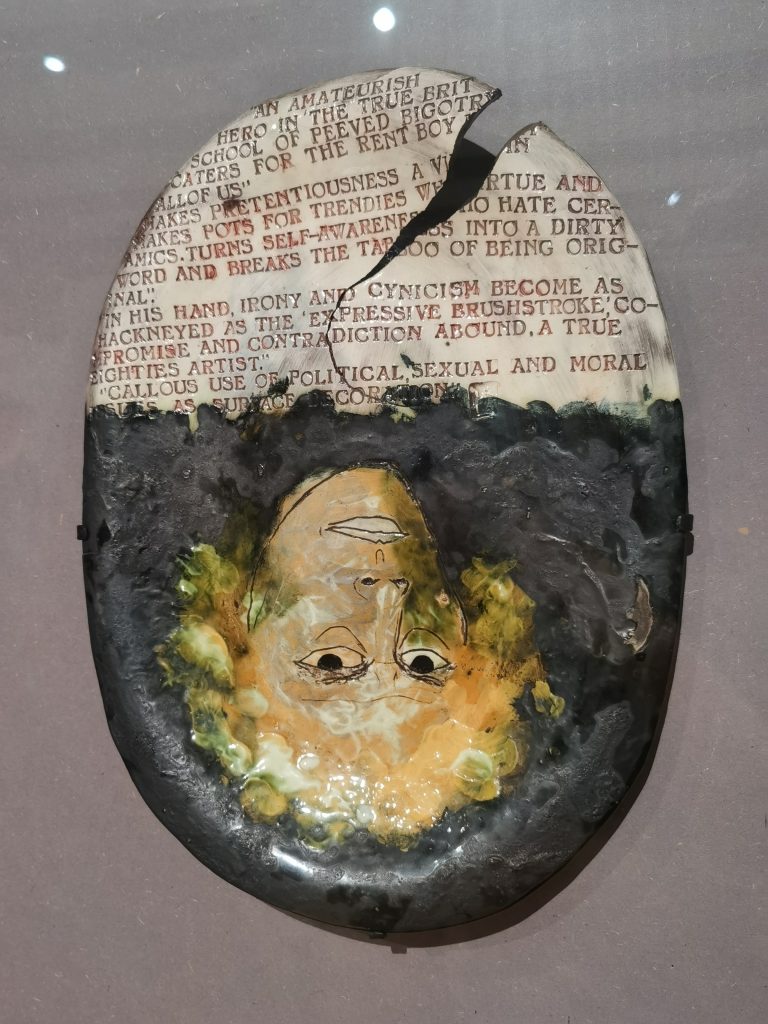 "AN AMATEURISH
HERO IN THE TRUE BRIT
SCHOOL OF PEEVED BIGOTRY
CATERS FOR THE RENT BOY IN
ALLOF US"
MAKES PRETENTIOUSNESS A VIRTUE AND
MAKES POTS FOR TRENDIES WHO HATE CER-
AMICS. TURNS SELF-AWARENESS INTO A DIRTY
WORD AND BREAKS THE TABOO OF BEING ORIG-
NAL".
"IN HIS HAND, IRONY AND CYNICISM BECOME AS
HACKNEYED AS THE 'EXPRESSIVE BRUSHSTROKE', CO-
PROMISE AND CONTRADICTION ABOUND. A TRUE
EIGHTIES ARTIST."
"CALLOUS USE OF POLITICAL, SEXUAL AND MORAL
SUES AS SURFACE DECORATION"